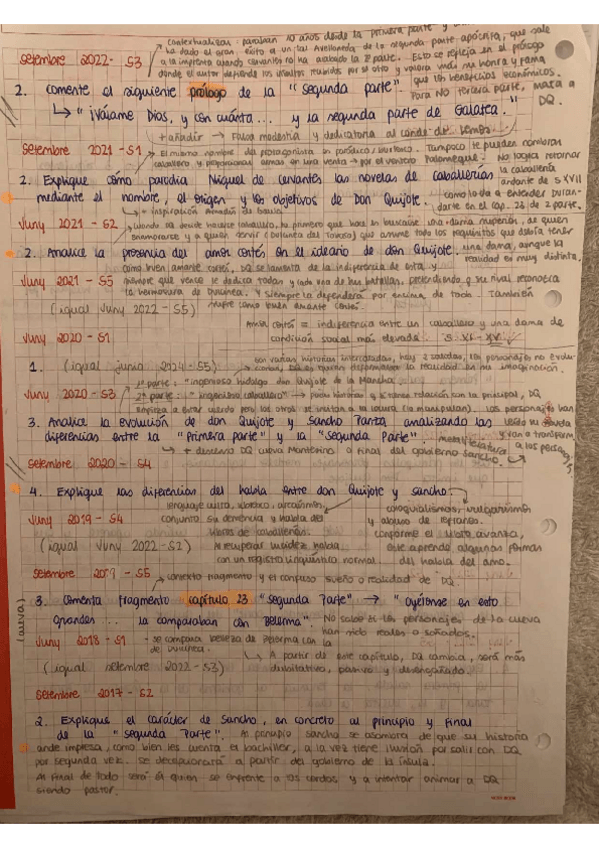 contextualizar: pasaban 10 años desde la primera parte y
ha dado el gran éxito a un tal Avellaneda de la segunda parte apócrifa, que sale
Setembre 2022 - S3
a la imprenta cuando cervantes no ha acabado la 2ª parte. Esto se refleja en el prólogo
donde el autor defiende los insultos recibidos por el otro y valora más su honra y fama
que los beneficios económicos.
2. Comente el siguiente prólogo de la "Segunda parte"
Para NO tercera parte, mata a DQ.
↳ "¡Válame Dios, y con cuánta... y la segunda parte de Galatea."
+ añadir → Falsa modestia y dedicatoria al conde de Lemos.
Setembre 2021 - S1
El mismo nombre del protagonista en paródico,
Tampoco te pueden nombrar
caballero y proporcionar armas en una venta → por el ventero Palomeque. No logra retornar
la caballería
2. Explique cómo parodia Miguel de Cervantes las novelas de caballerías
andante de s. XVII
mediante el nombre, el origen y los objetivos de Don Quijote.
como lo da a entender Duran-
darte en el cap. 23 de 2. parte.
+ inspiración Amadís de Gaula.
Juny 2021 - S2
cuando DQ decide hacerse caballero, lo primero que hace es buscarse una dama superior, de quien
enamorarse y a quien servir (Dulcinea del Toboso) que asume todo los requisitos que debería tener
2. Analice la presencia del amor cortés en el ideario de don Quijote.
una dama, aunque la
realidad es muy distinta.
como buen amante cortés, DQ se lamenta de la indiferencia de esta, y
Juny 2021 - S5
siempre que vence le dedica todas y cada una de sus batallas, pretendiendo que su rival reconozca
la hermosura de Dulcinea. Y siempre la defenderá por encima de todo. También
(igual Juny 2022 - S5)
sufre como buen amante cortés.
Amor cortés = indiferencia entre un caballero y una dama de
Juny 2020 - S1
condición social más elevada. S. XI - XV.
1. (igual junio 2024 - S5)
son varias historias intercaladas, hay 2 salidas, los personajes no evolu-
cionan, DQ es quien deformaba la realidad en su imaginación.
1ª parte: "ingenioso hidalgo don Quijote de la Mancha"
Juny 2020 - S3
2ª parte: "ingenioso caballero" → pocas historias y si tienen relación con la principal, DQ
empieza a estar cuerdo pero los otros le incitan a la locura (lo manipulan). Los personajes han
leído su novela
3. Analice la evolución de don Quijote y Sancho Panza, analizando las
y van a transform
diferencias entre la "Primera parte" y la "Segunda Parte".
metaliteratura
a los personajes
+ descenso DQ cueva Montesino o final del gobierno Sancho.
Setembre 2020 - S4
4. Explique las diferencias del habla entre don Quijote y Sancho.
lenguaje culto, retórico, arcaísmos,
coloquialismos, vulgarismos
Juny 2019 - S4
conjunto su demencia y habla del
y abuso de refranes.
libros de caballerías.
conforme el libro avanza,
(igual Juny 2022 - S2)
Al recuperar lucidez habla
este aprende algunas formas
con un registro lingüístico normal.
del habla del amo.
Setembre 2019 - S5
contexto fragmento y el confuso sueño o realidad de DQ.
3. Comenta fragmento capítulo 23 "Segunda Parte" → "Oyéronse en esto
(cueva)
grandes ... la comparaban con Belerma".
No sabe si los personajes de la cueva
han sido reales o soñados.
Juny 2018 - S1
- se compara belleza de Belerma con la
de Dulcinea.
↳ A partir de este capítulo, DQ cambia, será más
(igual setembre 2022 - S3)
dubitativo, pasivo y desengañado.
Setembre 2017 - S2
2. Explique el carácter de Sancho, en concreto al principio y final
de la "Segunda Parte".
Al principio Sancho se asombra de que su historia
ande impresa, como bien les cuenta el bachiller, a la vez tiene ilusión por salir con DQ
por segunda vez. Se decepcionará a partir del gobierno de la ínsula.
Al final de todo será él quien se enfrente a los cerdos y a intentar animar a DQ
siendo pastor.